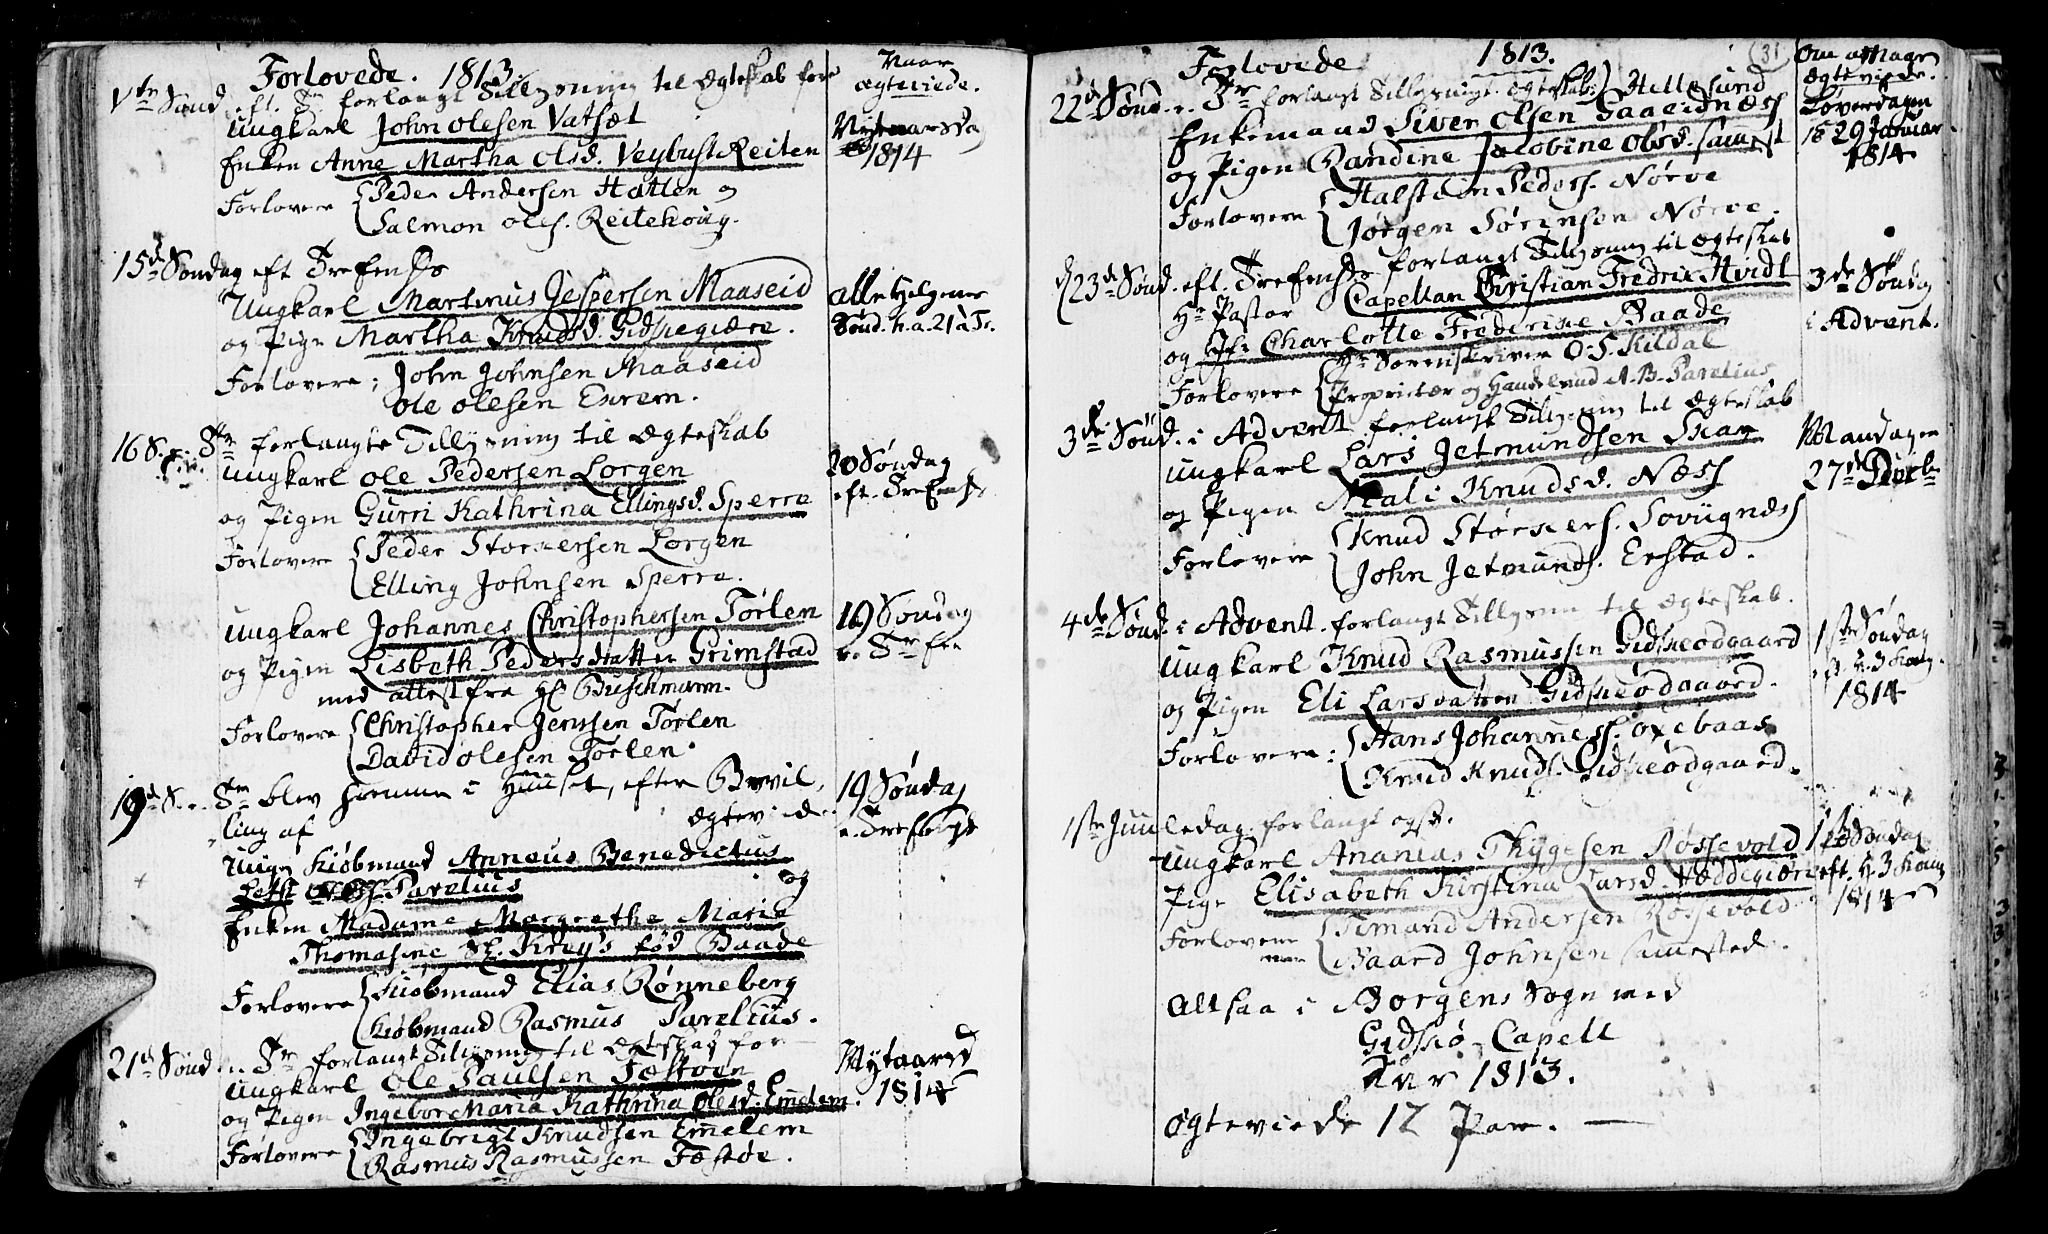 Forlovede. 1813.
Naar
ægteviede.
Vte Sønd. eft. Tr. forlangt Tillysning til Ægteskab for
Ungkarl John Olesen Vatsæt
Enken Anne Martha Olsd. Veybust Reiten
Forlovere Peder Andersen Hatlen og
Salmon Oles. Reitehoug.
Nytaarsda
1814
15de Søndag eft Trefents
Ungkarl Martinus Jespersen Maaseid
og Pige Martha Knudsd. Gidskegiære.
Forlovere; John Johnsen Maaseid
Ole Olesen Exrem.
alle Helgener
Sønd. h.a. 21 à Tr.
16 S. e. Tr forlangte Tillysning til Ægteskab
Ungkarl Ole Pedersen Lorgen
og Pigen Gurri Kathrina Ellingsd. Sperre
Forlovere Peder Storkersen Lorgen
Elling Johnsen Sperre.
20 Søndag
eft. Trefents
Ungkarl Johannes Christophersen Tørlen
og Pigen Lisbeth Pedersdatter Grimstad
med attest fra H. Buschmann.
Forlovere Christopher Jenssen Tørlen
David Olesen Tørlen.
19 Søndag
e. Trefen
19d S. e. Tr blev hiemme i Huuset, efter Bevil,
ling af ægteviede
Unge Kiøbmand Anneus Benedictus
Leth Parelius og
Enken Madame Margrethe Maria
Thomasine Sl. Kroy's fød Baade
Forlovere Kiøbmand Elias Rønneberg
Kiøbmand Rasmus Parelius.
19 Søndag
e. Trefoligh
21d Sønd. e. Tr. forlangt Tillysning til Ægteskab for
Ungkarl Ole Paulsen Festøen
og Pigen Ingebor Maria Kathrina Olesd. Emelem.
Forlovere Ingebrigt Knudsen Emelem
Rasmus Rasmussen Festøe.
Nytaarsd
1814
Forlovede 1813. (31
Om og Naar
ægteviede.
22d Sønd. e. Tr forlangt Tillysning t. Ægteskab; Hellesund
Enkemand Siver Olsen Gaaeidnæss
og Pigen Randine Jacobine Olsd. samest
Forlovere Halstein Peders. Nørve
Jørgen Sørensen Nørve.
Løverdagen
d 29 Januar
1814
d 23d Sønd. eft. Trefents forlangt Tillysning til Ægteskab
Hr Pastor Capellan Christian Fredric Hvidt
og Jfr Charlotte Frederike Baade
Forlovere Hr Sorenskriver O. S. Kildal
Proprietær og Handelsmd A. B. Parelius
3de Søndag
i Advent.
3de Sønd. i Advent forlangt Tillysning til Ægteskab
Ungkarl Lars Jetmundsen Skar
og Pigen Mali Knudsd. Næss
Forlovere Knud Størkers. Sovügnæss
John Jetmunds. Erstad.
Mandagen
27d Decbr
4de Sønd. i Advent. forlangt Tillysnin til Ægteskab.
Ungkarl Knud Rasmussen Gidskeødgaard
og Pigen Eli Larsdatter Gidskeødgaard.
Forlovere: Hans Johanness. Oxebaas
Knud Knuds. Gidskeødgaard.
1ste Søndag
eft. H. 3 Kong.
1814
1ste Juuledag forlangt ogs.
Ungkarl Ananias Thygesen Røssevold
Pige Elisabeth Kirstina Larsd. Væddegiære
Forlovere Timand Andersen Røssevold
Baard Johnsen samested.
1ste Søndag
eft. H. 3 Kong
1814
Altsaa i Borgens Sogn med
Gidskø-Capell
Aar 1813.
Ægteviede 12 Par.